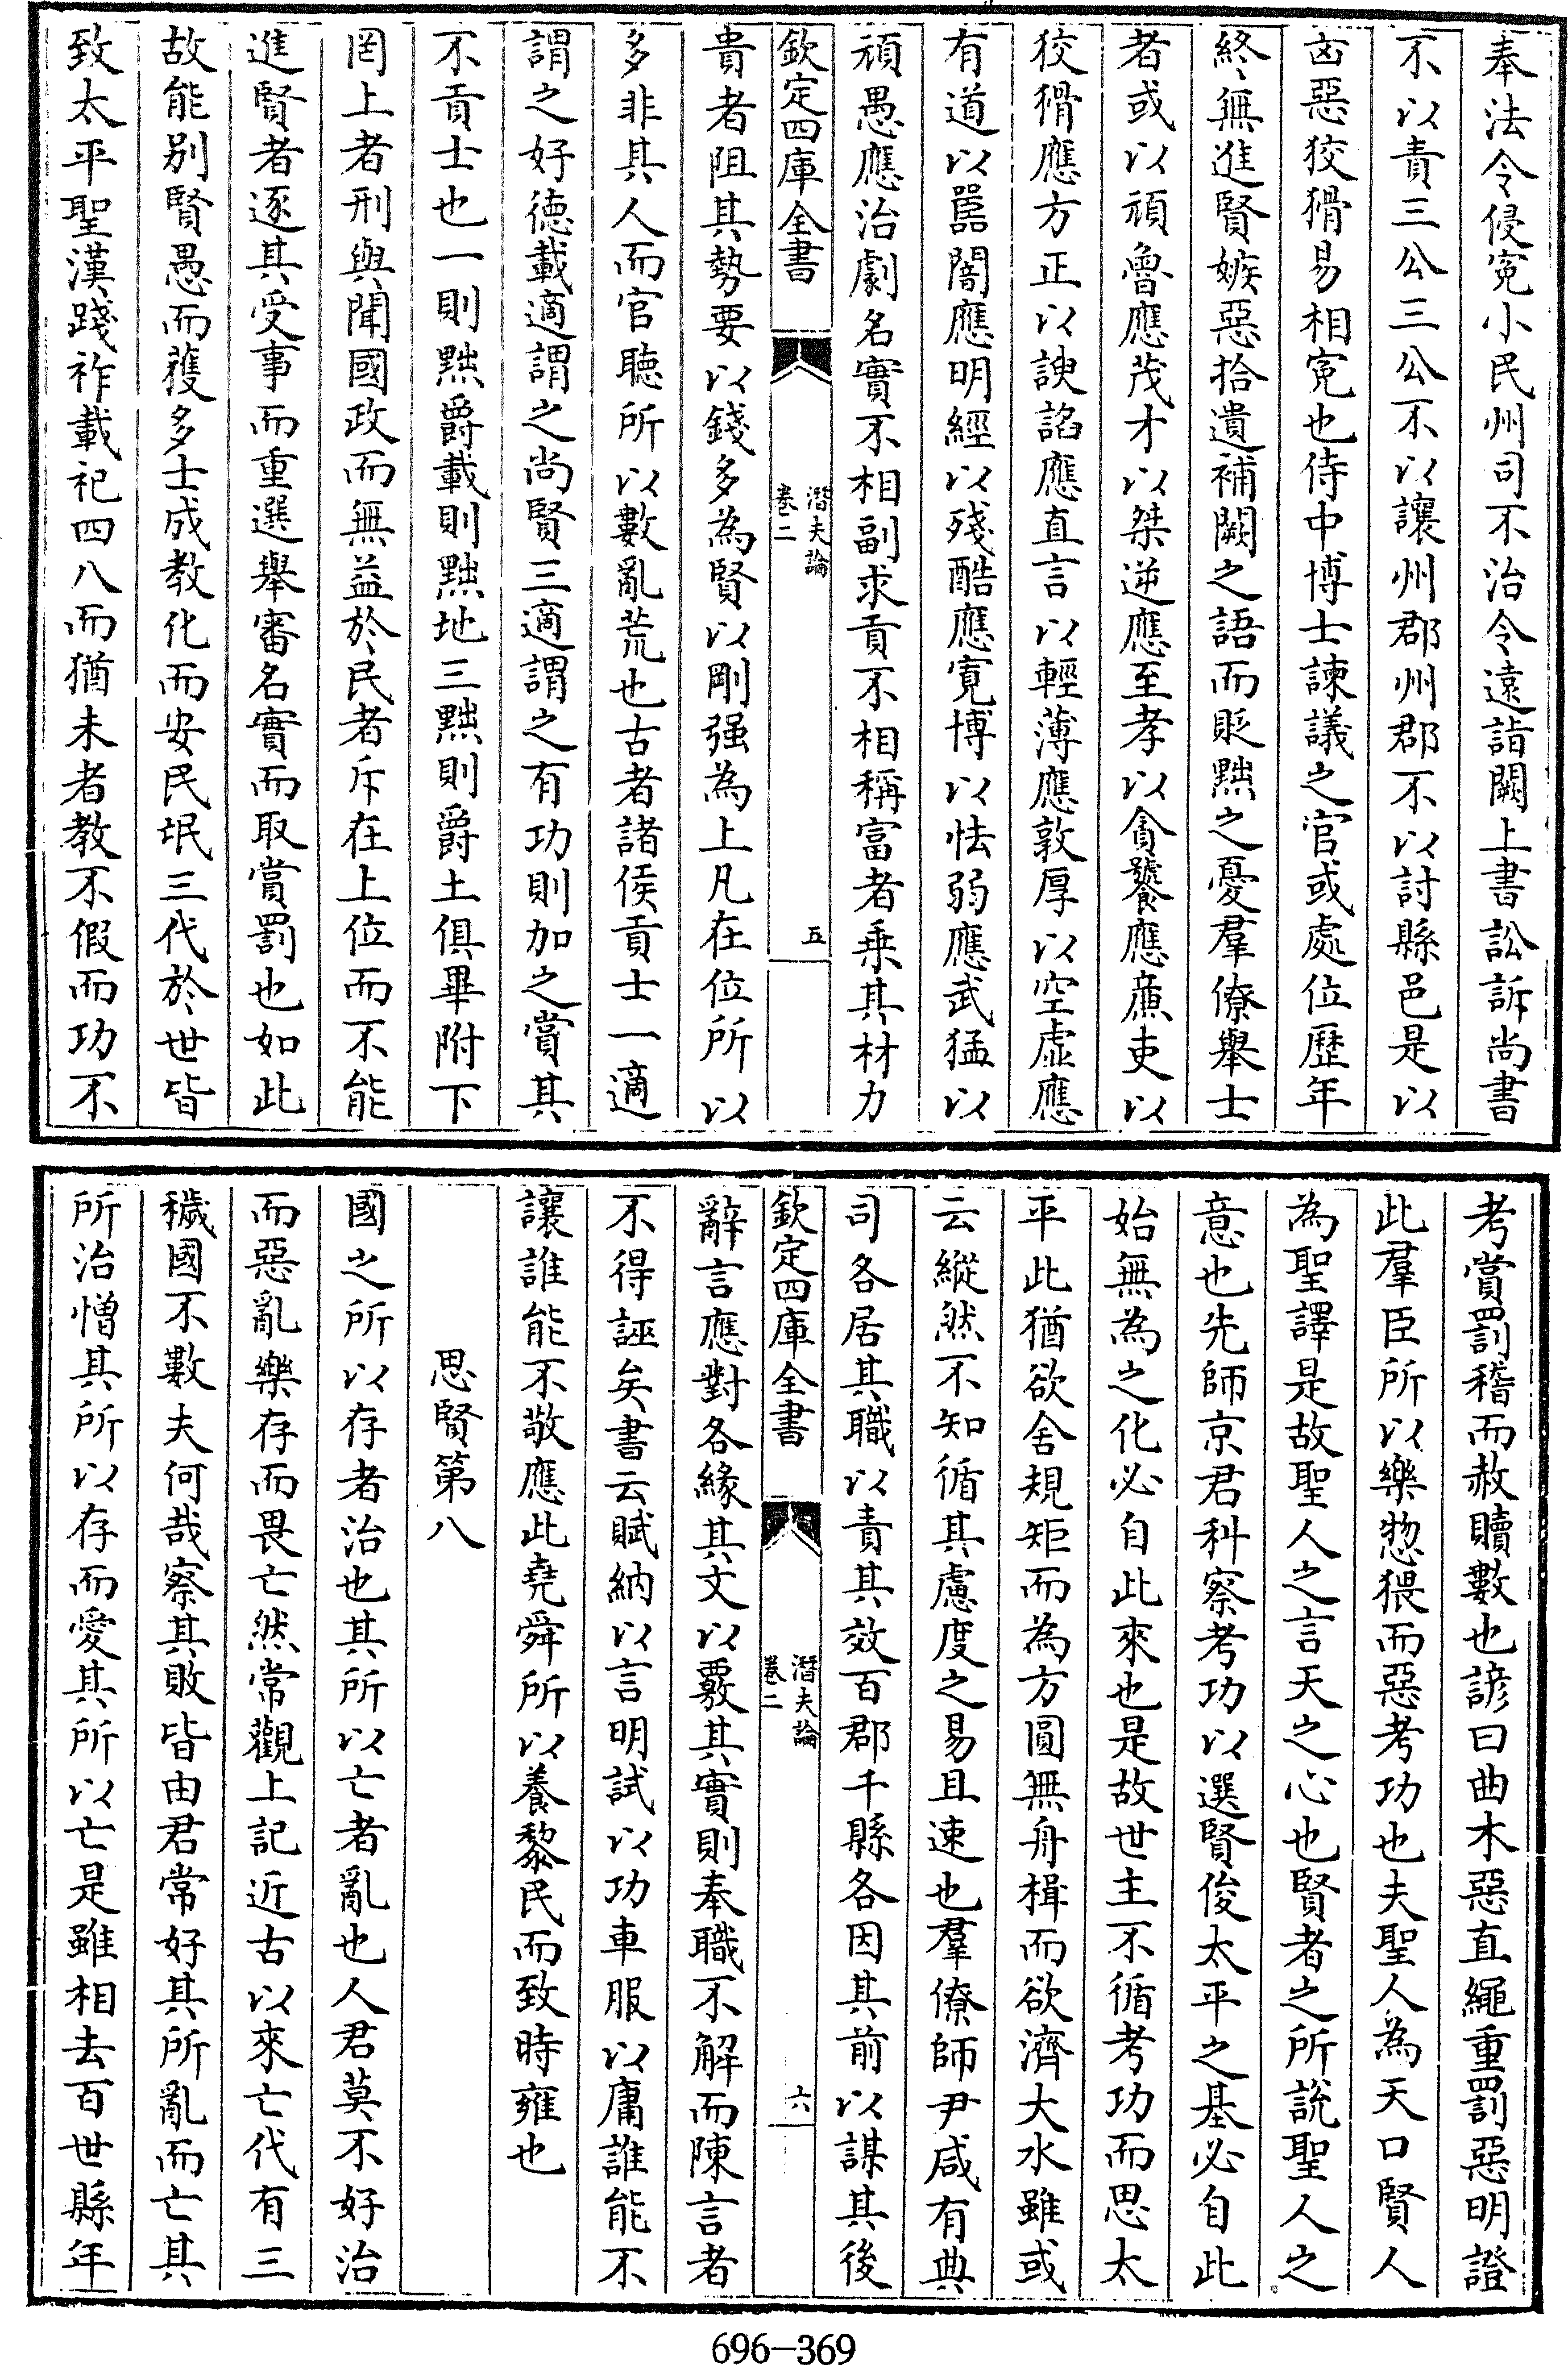 奉法令侵寃小民州司不治令遠詣闕上書訟訴尚書
不以責三公三公不以讓州郡州郡不以討縣邑是以
凶惡狡猾易相寃也侍中博士諫議之官或處位歷年
終無進賢嫉惡拾遺補闕之語而貶黜之憂羣僚舉士
者或以頑魯應茂才以桀逆應至孝以貪饕應亷吏以
狡猾應方正以諛諂應直言以輕薄應敦厚以空虛應
有道以嚚闇應明經以殘酷應寛博以怯弱應武猛以
頑愚應治劇名實不相副求貢不相稱富者乗其材力
欽定四庫全書
潛夫論
卷二
五
貴者阻其勢要以錢多為賢以剛强為上凡在位所以
多非其人而官聴所以數亂荒也古者諸侯貢士一適
謂之好徳載適謂之尚賢三適謂之有功則加之賞其
不貢士也一則黜爵載則黜地三黜則爵土俱畢附下
罔上者刑與聞國政而無益於民者斥在上位而不能
進賢者逐其受事而重選舉審名實而取賞罰也如此
故能别賢愚而獲多士成教化而安民氓三代於世皆
致太平聖漢踐祚載祀四八而猶未者教不假而功不
考賞罰稽而赦贖數也諺曰曲木惡直繩重罰惡明證
此羣臣所以樂惣猥而惡考功也夫聖人為天口賢人
為聖譯是故聖人之言天之心也賢者之所說聖人之
意也先師京君科察考功以選賢俊太平之基必自此
始無為之化必自此來也是故世主不循考功而思太
平此猶欲舍規矩而為方圓無舟楫而欲濟大水雖或
云縱然不知循其慮度之易且速也羣僚師尹咸有典
司各居其職以責其效百郡千縣各因其前以謀其後
欽定四庫全書
潛夫論
卷二
六
辭言應對各緣其文以覈其實則奉職不解而陳言者
不得誣矣書云賦納以言明試以功車服以庸誰能不
讓誰能不敬應此堯舜所以養黎民而致時雍也
思賢第八
國之所以存者治也其所以亡者亂也人君莫不好治
而惡亂樂存而畏亡然常觀上記近古以來亡代有三
穢國不數夫何哉察其敗皆由君常好其所亂而亡其
所治憎其所以存而愛其所以亡是雖相去百世縣年
696-369